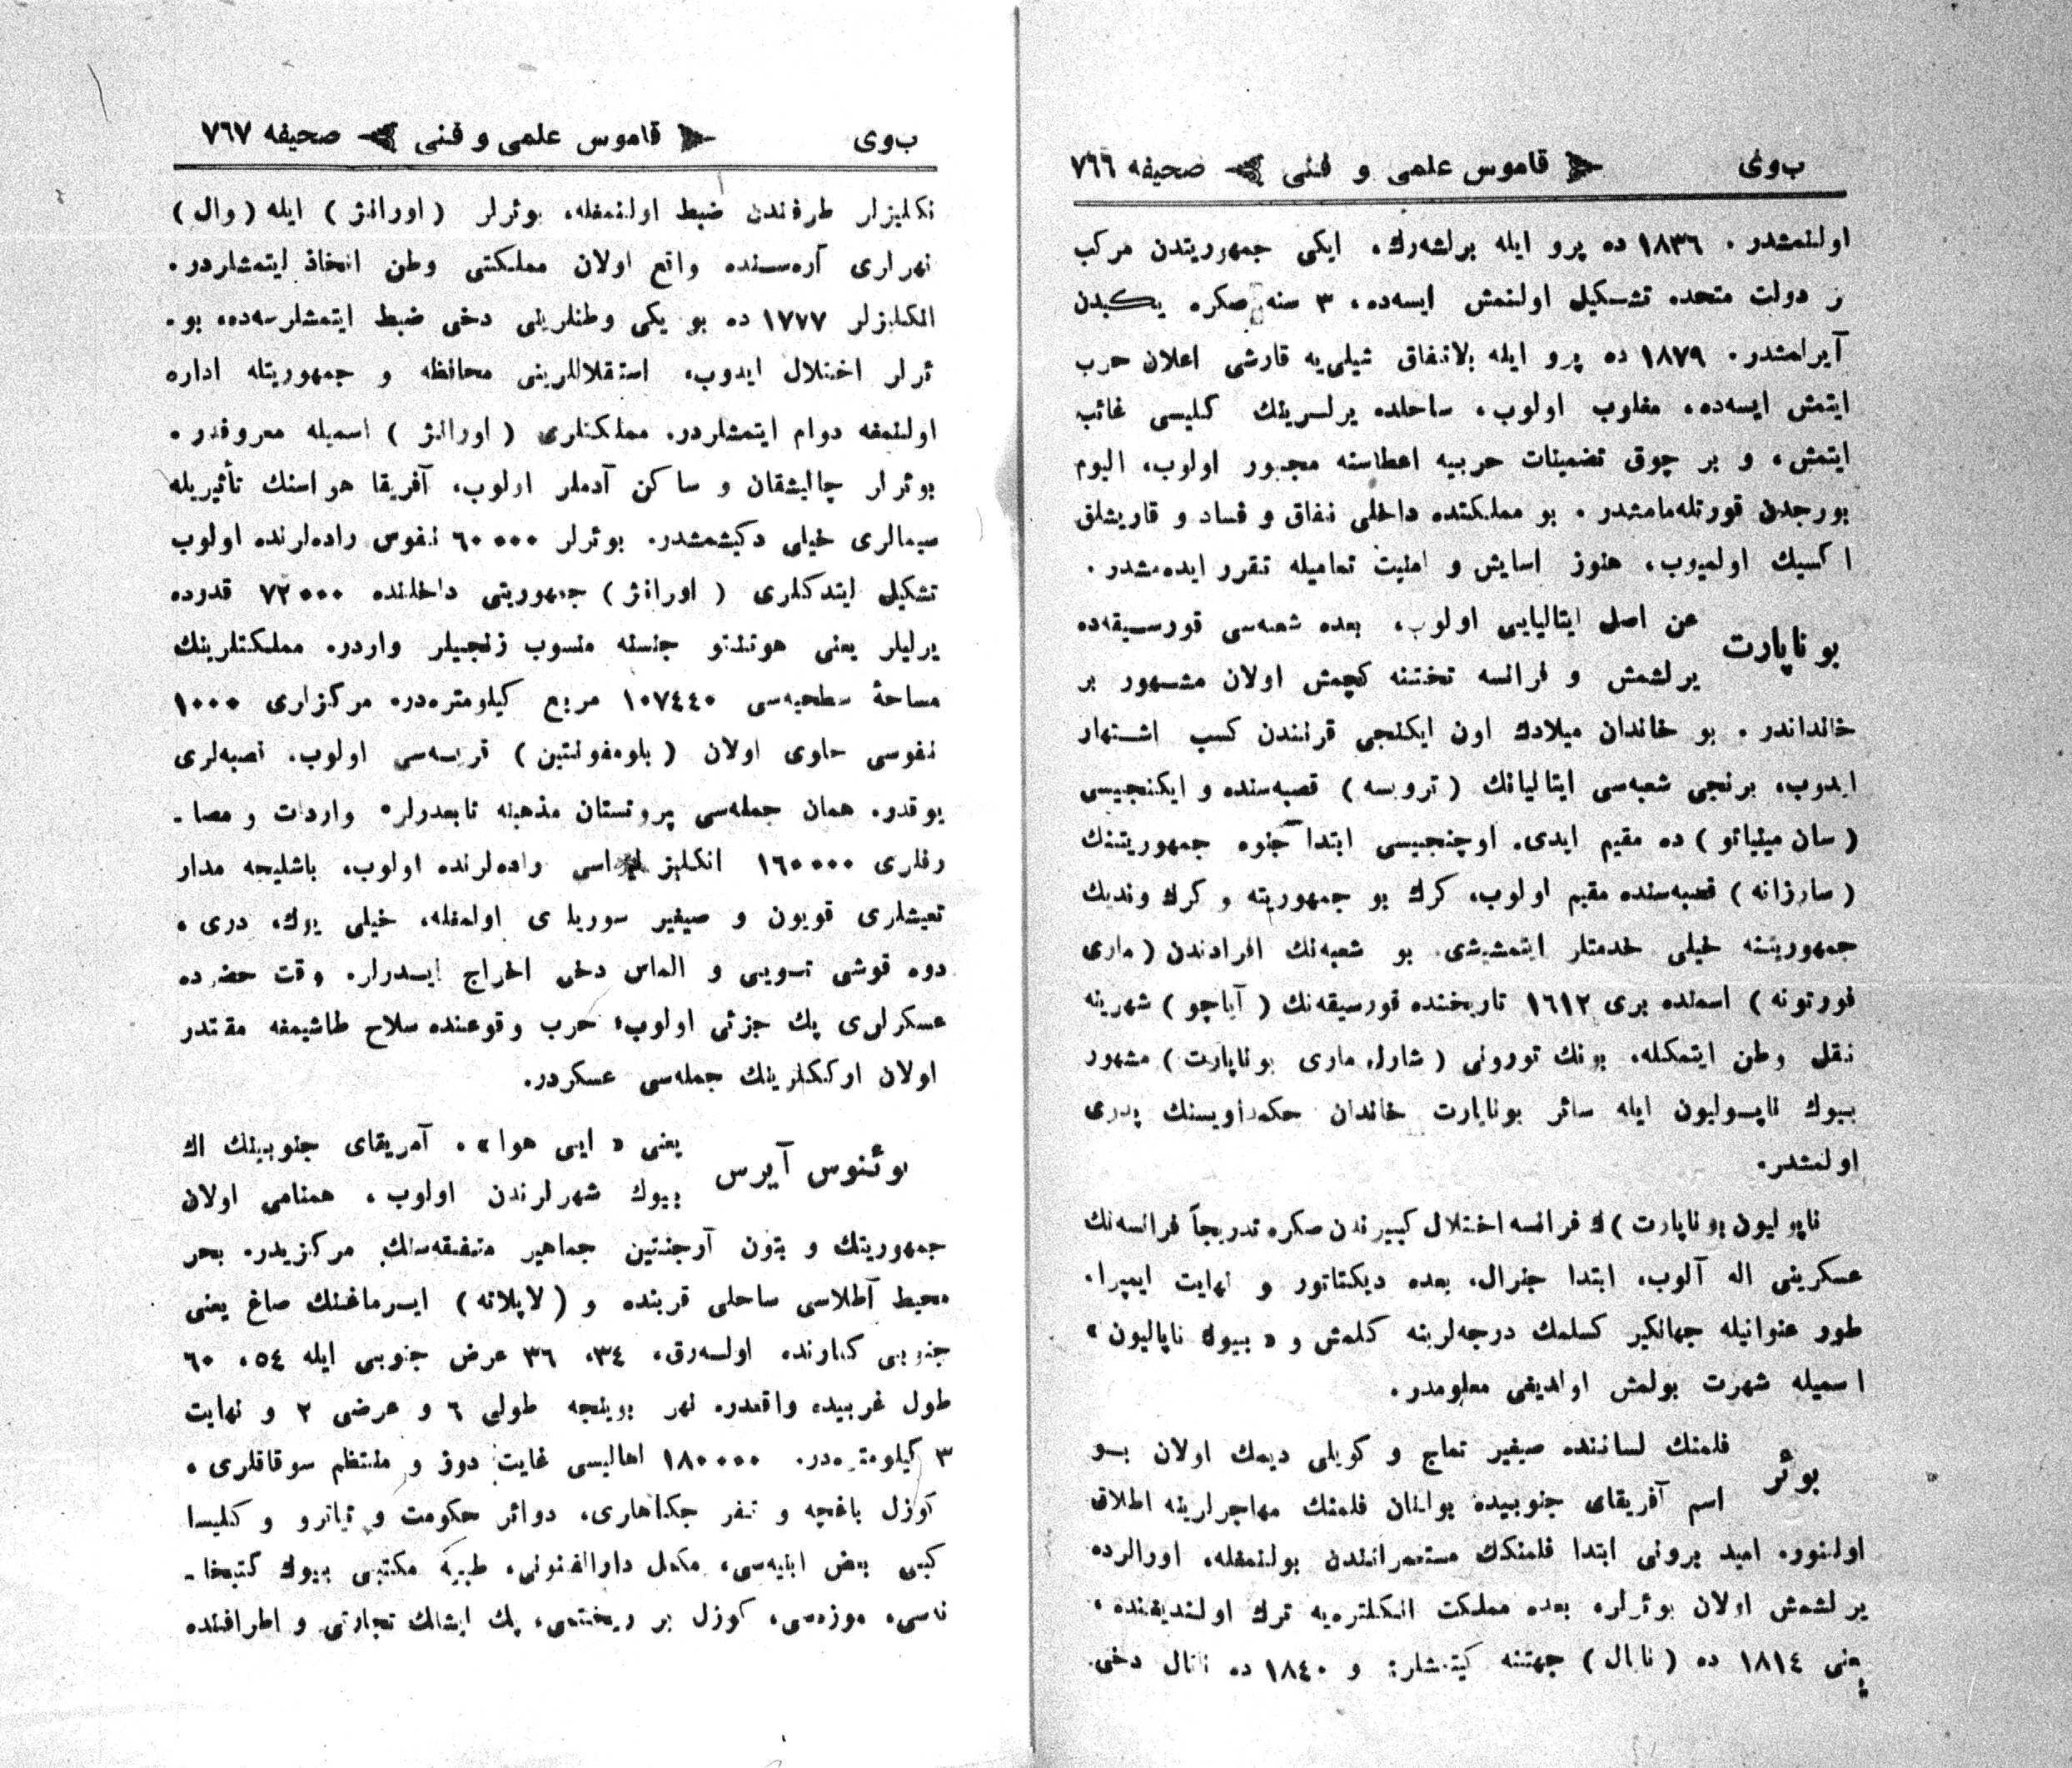 ب‌وی قاموس علمی و فنی صحیفه ٧٦٦
اولنمشدر . ١٨٣٦ ده پرو ایله برلشه‌رك، ایکی جمهوریتدن مرکب
ر دولت متحده تشکیل اولنمش ایسه‌ده، ٣ سنه صکره یکیدن
آیرلمشدر. ١٨٧٩ ده پرو ایله بلاتفاق شیلی‌یه قارشی اعلان حرب
ایتمش ایسه‌ده، مغلوب اولوب، ساحلده یرلرینك کلیسی غائب
ایتمش، و بر چوق تضمینات حربیه اعطاسنه مجبور اولوب، الیوم
بورجدن قورتله‌مامشدر . بو مملکتده داخلی نفاق و فساد و قاریشلق
اکسیك اولمیوب، هنوز اسایش و امنیت تمامیله تقرر ایده‌مشدر .
بوناپارت عن اصل ایتالیایی اولوب، بعده شعبه‌سی قورسیقه‌ده
یرلشمش و فرانسه تختنه کچمش اولان مشهور بر
خانداندر . بو خاندان میلادك اون ایکنجی قرنندن کسب اشتهار
ایدوب، برنجی شعبه‌سی ایتالیانك ( ترویسه ) قصبه‌سنده و ایکنجیسی
( سان مینیاتو ) ده مقیم ایدی. اوچنجیسی ابتدا جنوه جمهوریتنك
( سارزانه ) قصبه‌سنده مقیم اولوب، كرك بو جمهوریته و كرك وندیك
جمهوریتنه خیلی خدمتلر ایتمشیدی. بو شعبه‌نك افرادندن ( ماری
فورتونه ) اسمنده بری ١٦١٢ تاریخنده قورسیقه‌نك ( آیاچو ) شهرینه
نقل وطن ایتمکله، بونك تورونی ( شارل ماری بوناپارت ) مشهور
بیوك ناپولیون ایله سائر بوناپارت خاندان حکمداریسنك پدری
اولمشدر.
ناپولیون بوناپارت )ك فرانسه اختلال کبیرندن صکره تدریجاً فرانسه‌نك
عسکرینی اله آلوب، ابتدا جنرال، بعده دیکتاتور و نهایت ایمپرا.
طور عنوانیله جهانکیر کسلمك درجه‌لرینه کلمش و « بیوك ناپالیون »
اسمیله شهرت بولمش اولدیغی معلومدر.
بوئر فلمنك لساننده صیغیر تماج و کویلی دیمك اولان بو
اسم آفریقای جنوبیده بولنان فلمنك مهاجرلرینه اطلاق
اولنور. امید برونی ابتدا فلمنكك مستعمراتندن بولنمغله، اورالرده
یرلشمش اولان بوئرلر، بعده مملکت انکلتره‌یه ترك اولندیغنده،
یعنی ١٨١٤ ده ( ناتال ) جهتنه کیتمشلر؛ و ١٨٤٠ ده ناتال دخی
ب‌وی قاموس علمی و فنی صحیفه ٧٦٧
نکلیزلر طرفندن ضبط اولنمغله، بوئرلر ( اورانژ ) ایله (وال)
نهرلری آره‌سنده واقع اولان مملکتی وطن اتخاذ ایتمشلردر.
انکلیزلر ١٧٧٧ ده بو یکی وطنلرینی دخی ضبط ایتمشلرسه‌ده، بو.
ئرلر اختلال ایدوب، استقلاللرینی محافظه و جمهوریتله اداره
اولنمغه دوام ایتمشلردر. مملکتلری ( اورانژ ) اسمیله معروفدر.
بوئرلر چالیشقان و ساکن آدملر اولوب، آفریقا هواسنك تأثیریله
سیمالری خیلی دکیشمشدر. بوئرلر ٦٠٠٠٠ نفوس راده‌لرنده اولوب
تشکیل ایتدکلری ( اورانژ ) جمهوریتی داخلنده ٧٢٠٠٠ قدرده
یرلیلر یعنی هوتنتو جنسنه منسوب زنجیلر واردر. مملکتلرینك
مساحهٔ سطحیه‌سی ١٠٧٤٤٠ مربع کیلومتره‌در. مرکزلری ١٠٠٠
نفوسی حاوی اولان ( بلومفونتین ) قریه‌سی اولوب، قصبه‌لری
یوقدر. همان جمله‌سی پروتستان مذهبنه تابعدرلر. واردات و مصا-
رفلری ١٦٠٠٠٠ انکلیز لیراسی راده‌لرنده اولوب، باشلیجه مدار
تعیشلری قویون و صیغیر سوریلری اولمغله، خیلی یوك، دری،
دوه قوشی تویی و الماس دخی اخراج ایدرلر. وقت حضرده
عسکرلری پك جزئی اولوب، حرب وقوعنده سلاح طاشیمغه مقتدر
اولان ارککلرینك جمله‌سی عسکردر.
بوئنوس آیرس یعنی « ایی هوا » . آمریقای جنوبینك اك
بیوك شهرلرندن اولوب ، همنامی اولان
جمهوریتك و بتون آرجنتین جماهیر متفقه‌سنك مرکزیدر. بحر
محیط آطلاسی ساحلی قربنده و ( لاپلاته ) ایرماغنك صاغ یعنی
جنوبی کنارنده اوله‌رق، ٣٤، ٣٦ عرض جنوبی ایله ٥٤، ٦٠
طول غربیده واقعدر. نهر بوینجه طولی ٦ و عرضی ٢ و نهایت
٣ کیلومتره‌در. ١٨٠٠٠٠ اهالیسی غایت دوز و منتظم سوقاقلری،
کوزل باغچه و تنفر جکاهلری، دوائر حکومت و تیاترو و کلیسا
کبی بعض ابنیه‌سی، مکمل دارالفنونی، طبیه مکتبی بیوك کتبخا-
نه‌سی، موزه‌سی، کوزل بر ریختمی، پك ایشلك تجارتی و اطرافنده